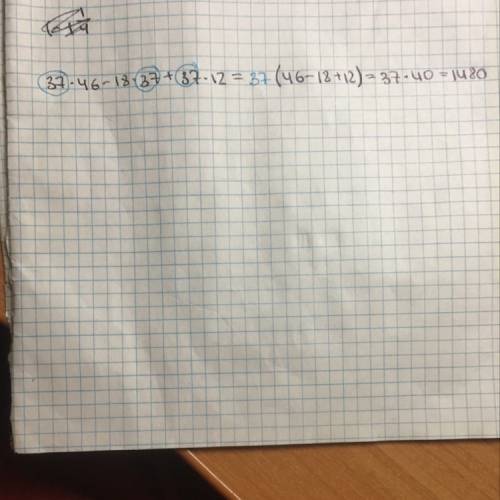 37·46-18·37+37·12=37(46-18+12)=37·40=1480